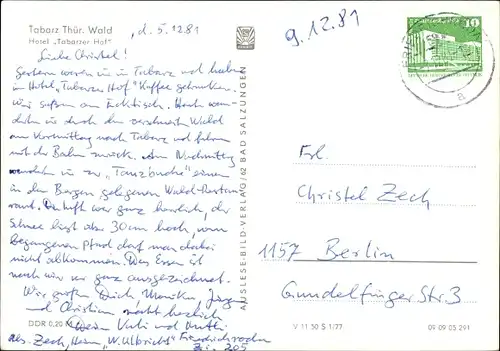 Tabarz Thür. Wald
Hotel „Tabarzer Hof"
, d. 5.12.81
9.12.81
10
Liebe Christel!
Gestern waren wir in Tabarz und haben
im Hotel „Tabarzer Hof" Kaffee getrunken.
Wir saßen am Ecktisch. Heute wan-
derten wir durch den verschneiten Wald
am Vormittag nach Tabarz und fuhren
mit der Bahn zurück. Am Nachmittag
wanderten wir zur „Tanzbuche" einem
in den Bergen gelegenen Wald-Restau-
rant. Die Luft war ganz herrlich, der
Schnee liegt über 30 cm hoch, vom
begangenen Pfad darf man dabei
nicht abkommen. Das Essen ist
nach wie vor ganz ausgezeichnet.
Wir grüßen Dich,
und Christian recht herzlich
Deine Vati und Mutti
abs. Zech, Heim „W. Ulbricht" Friedrichroda
Zi. 205
DDR 0,20 M
AUSLESE-BILD-VERLAG/62 BAD SALZUNGEN
Frl.
Christel Zech
1157 Berlin
Gundelfinger Str. 3
V 11 50 S 1/77
09 09 05 291